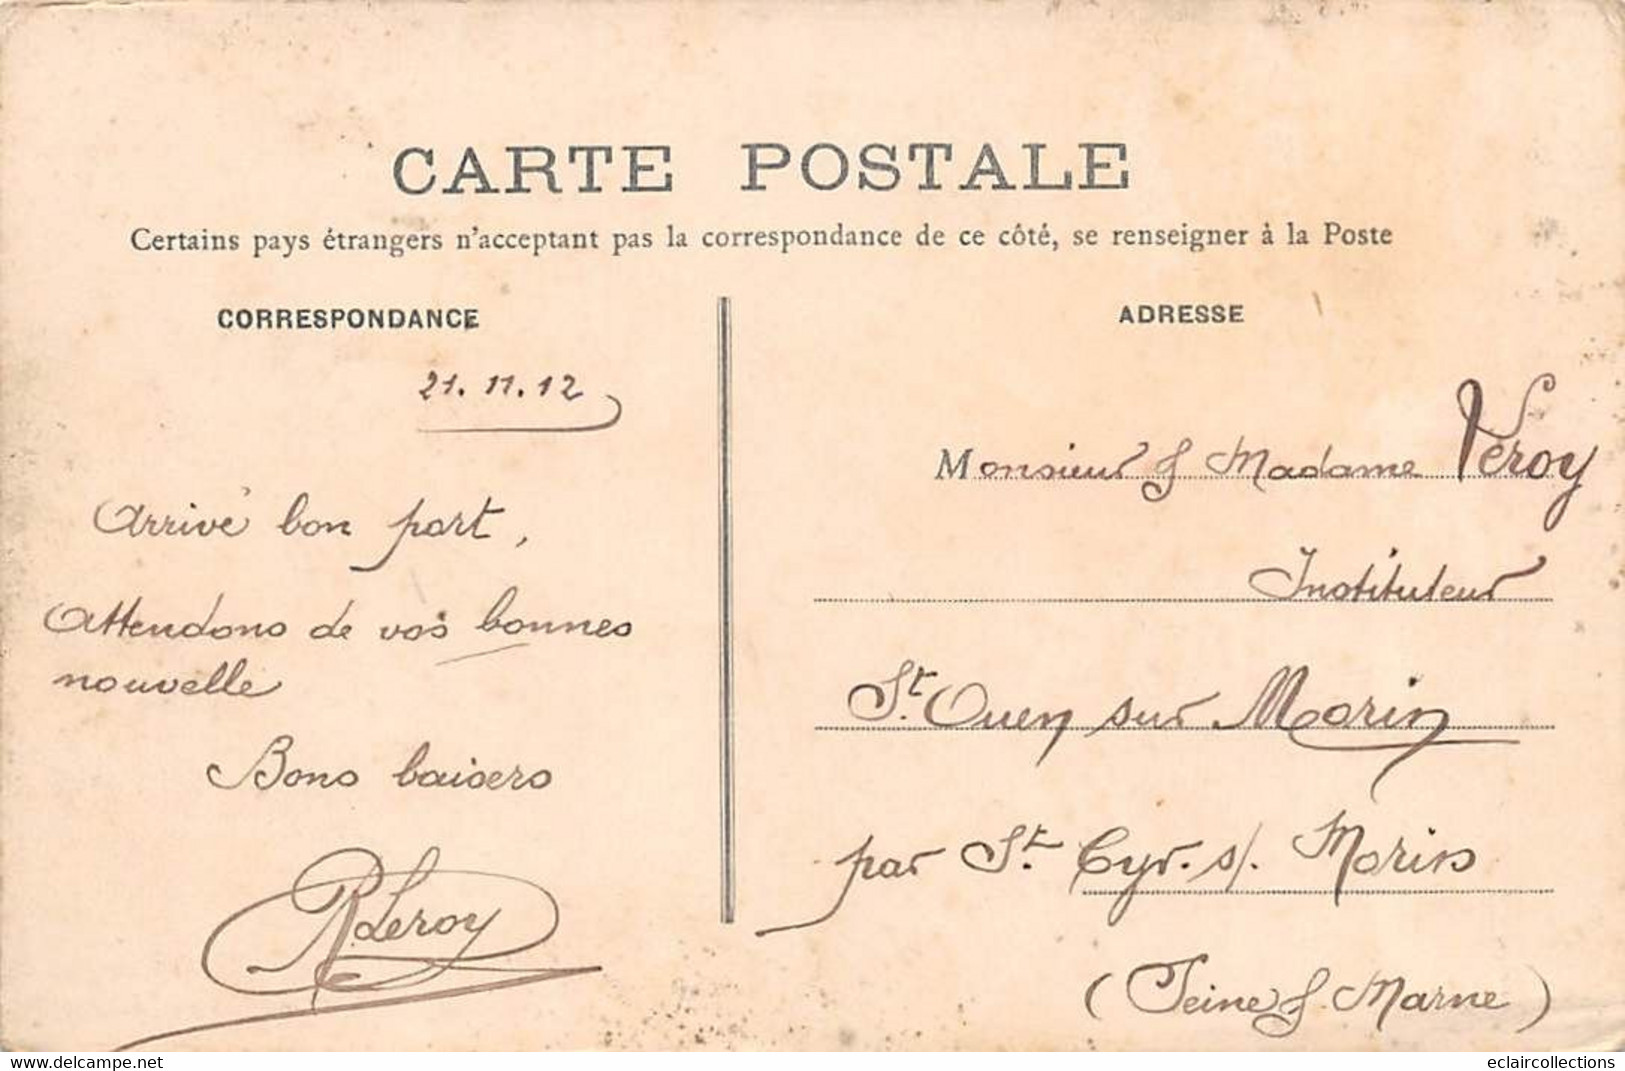 CARTE POSTALE
Certains pays étrangers n'acceptant pas la correspondance de ce côté, se renseigner à la Poste
CORRESPONDANCE
21.11.12
Arrivé bon port,
Attendons de vos bonnes
nouvelle
Bons baisers
R Leroy
ADRESSE
Monsieur & Madame Véroy
Instituteur
St. Ouen sur Morin
par St. Cyr. s/. Morin
(Seine & Marne)
www.delcampe.net
eclaircollections